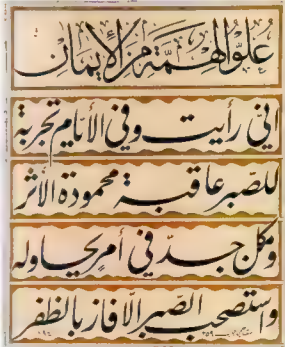 علو الهمة من الإيمان
إني رأيت وفي الأيام تجربة
للصبر عاقبة محمودة الأثر
وكل جد في أمر يحاوله
واستصحب الصبر الا فاز بالظفر